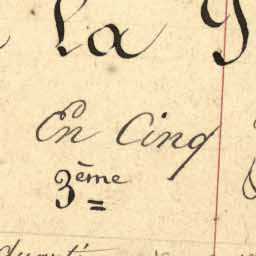 la
En Cinq
3ème